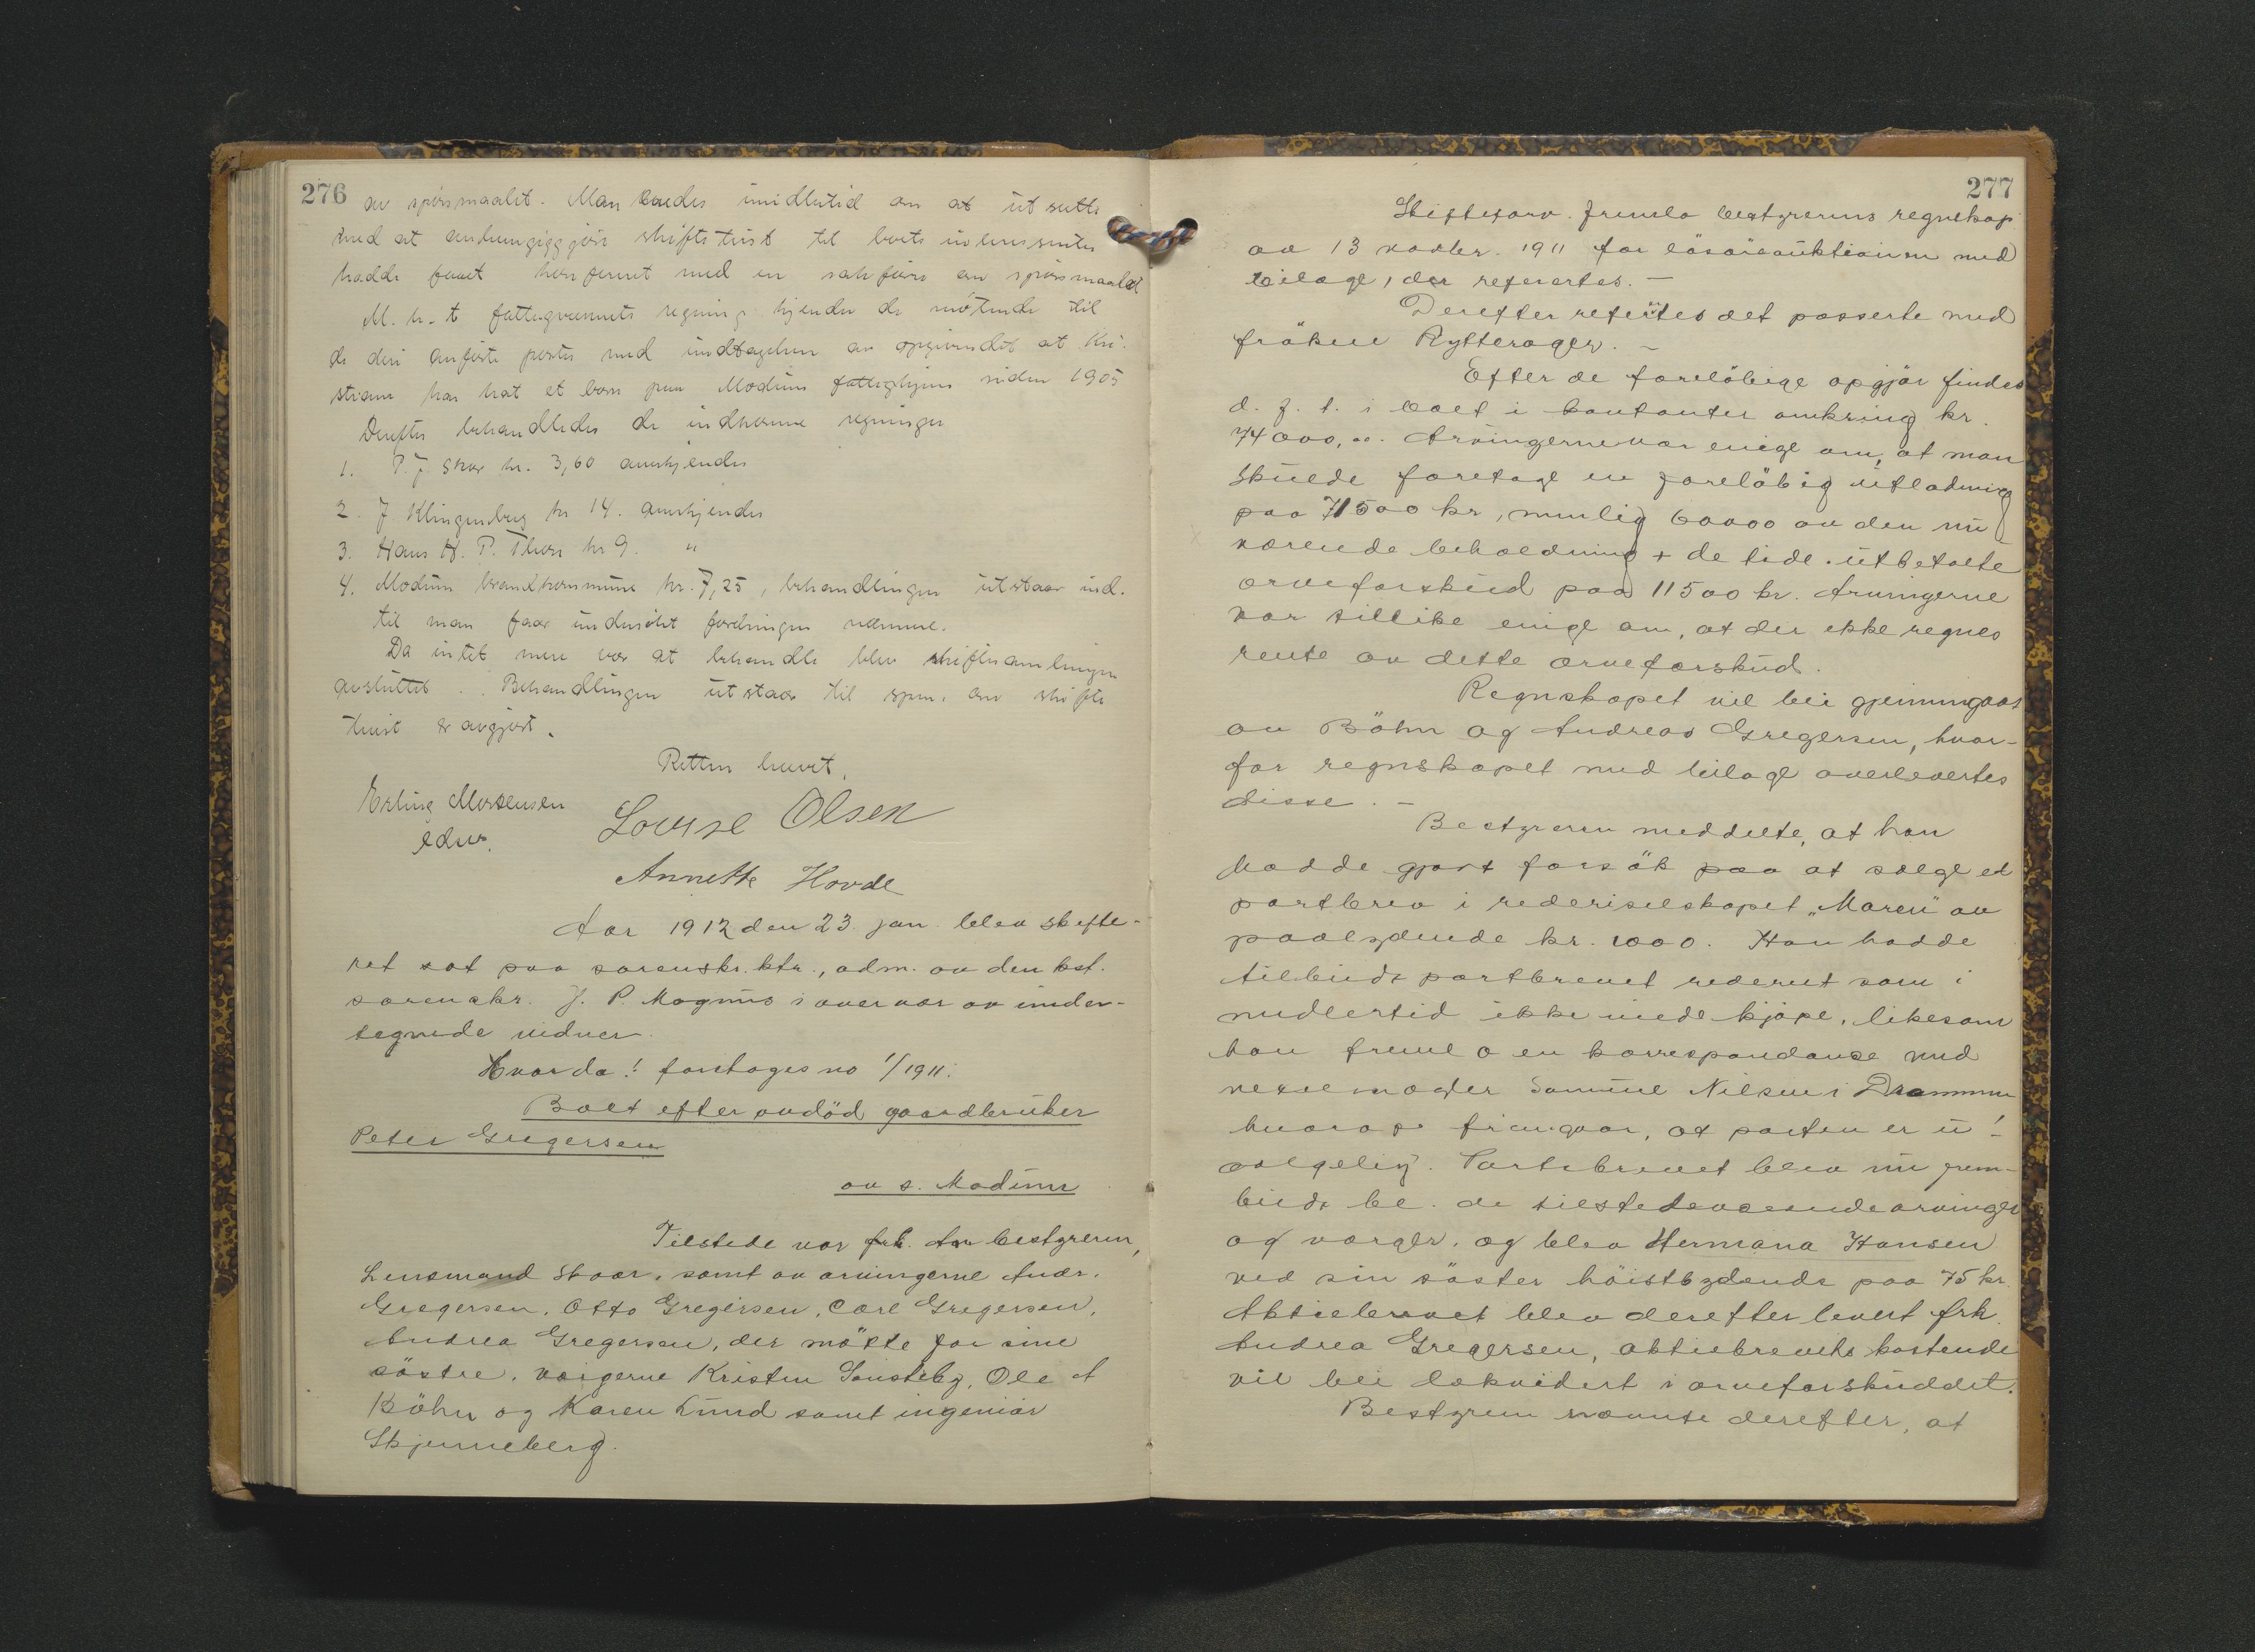 276
av spörsmaalet. Man enedes imidlertid om at utsætte
med at anhængiggjöre skiftetvist til boets interessenter
hadde faaet konferert med en sakförer om spörsmaalet
M. h. t fattigvæsenets regning kjender de mötende til
de deri anförte poster med undtagelse av opgivendet at Kri-
stiane har hat et barn paa Modum fattighjem siden 1905
Derefter behandledes de indkomne regninger
1. P. J. Skar kr. 3,60 anerkjendes
2. J Klingenberg kr 14. anerkjendes
3. Hans H. P. Thon kr 9. "
4. Modum brandkommune kr. 7,25, behandlingen utstaar ind-
til man faar undersökt fordringen nærmere.
Da intet mere var at behandle blev skiftesamlingen
avsluttet. Behandlingen utstaar til spm. om skifte
tvist er avgjort.
Retten hævet.
Erling Mortensen
edsv.
Louise Olsen
Annette Hovde
Aar 1912 den 23. jan. blev skifte-
ret sat paa sorenskr. ktr., adm. av den kst.
sorenskr. J. P. Magnus i overvær av under-
tegnede vidner.
Hvorda: foretoges no 1/1911:
Boet efter avdöd gaardbruker
Peter Gregersen
av s. Modum
Tilstede var bestyreren,
Lensmand Skaar, samt av arvingerne Andr.
Gregersen, Otto Gregersen, Carl Gregersen,
Andrea Gregersen, der mötte for sine
söstre, værgerne Kristen Sønsteby, Ole
Böhn og Karen Lund samt ingeniör
Skjenneberg.
277
Skifteforv. fremla bestyrerens regnskap
av 13 novbr. 1911 for lösöreauktionen med
bilage, der refertes. —
Derefter refertes det passerte med
fröken Rytterager. —
Efter de foreløbige opgjör findes
d. f. t. i boet i kontanter omkring kr.
74000,00. Arvingerne var enige om, at man
skulde foretage en foreløbig utlodning
paa 71500 kr, nemlig 60000 av den nu
værende beholdning + de tidl. utbetalte
arveforskud paa 11500 kr. Arvingerne
var tillike enige om, at der ikke regnes
rente av dette arveforskud.
Regnskapet vil bli gjennemgaat
av Böhn og Andreas Gregersen, hvor-
for regnskapet med bilage overlevertes
disse. —
Bestyreren meddelte, at han
hadde gjort forsök paa at sælge et
partbrev i rederiselskapet „Maren" av
paalydende kr. 1000. Han hadde
tilbudt partbrevet rederiet som i
midlertid ikke vilde kjöpe, likesom
han fremla en korrespondanse med
vekselmægler Samuel Nilsen i Drammen
hvorav fremgaar, at parten er u-
sælgelig. Partebrevet blev nu frem-
budt bl. de tilstedeværende arvinger
og værger, og blev Hermana Hansen
ved sin söster höistbydende paa 75 kr.
Aktiebrevet blev derefter levert frk.
Andrea Gregersen, aktiebrevets kostende
vil bli lekvidert i arveforskuddet.
Bestyreren nævnte derefter, at